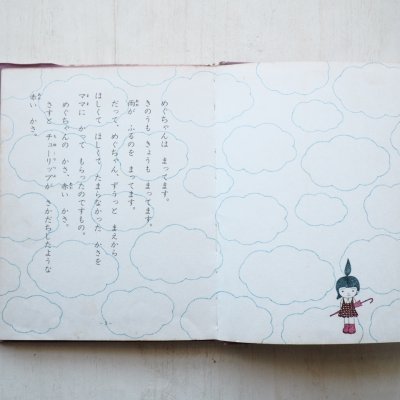 めぐちゃんは まってます。
きのうも きょうも まってます。
雨が ふるのを まってます。
だって、めぐちゃん、ずうっと まえから
ほしくて ほしくて、たまらなかった かさを
ママに かって もらったのですもの。
めぐちゃんの かさ、赤い かさ。
さすと チューリップが さかだちしたような
赤い かさ。